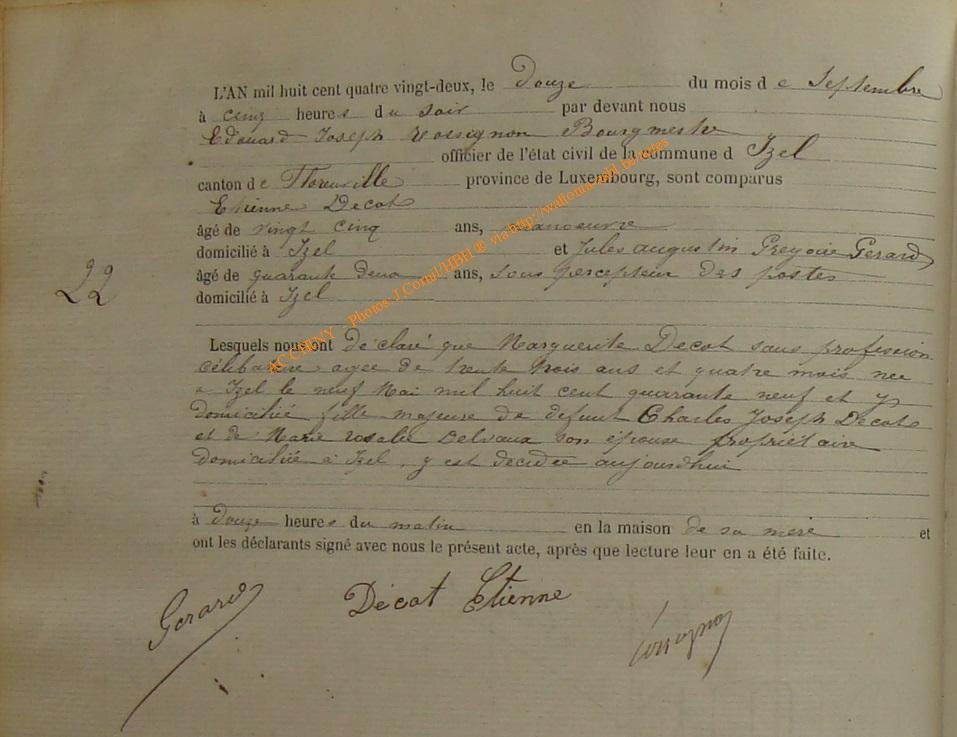 L'AN mil huit cent quatre vingt-deux, le Douze du mois d e Septembre
à cinq heures du soir par devant nous
Edouard Joseph Rossignon Bourgmestre
officier de l'état civil de la commune d Izel
canton de Florenville province de Luxembourg, sont comparus
Etienne Decot
âgé de vingt cinq ans, manoeuvre
domicilié à Izel et Jules augustin Gregoire Gerard
âgé de quarante deux ans, sous percepteur des postes
domicilié à Izel
22
Lesquels nous ont déclaré que Marguerite Decot sans profession
célibataire agee de trente trois ans et quatre mois nee
a Izel le neuf Mai mil huit cent quarante neuf et y
domiciliée fille majeure de defunt Charles Joseph Decot
et de Marie rosalie Delvaux son epouse propriétaire
domiciliée à Izel, y est decedée aujourdhui
à douze heures du matin en la maison de sa mere et
ont les déclarants signé avec nous le présent acte, après que lecture leur en a été faite.
Gerard Décot Etienne Rossignon
AC CHINY - Photos: J.Cornil/HBH ® via http://wallonia-gold.be.actes